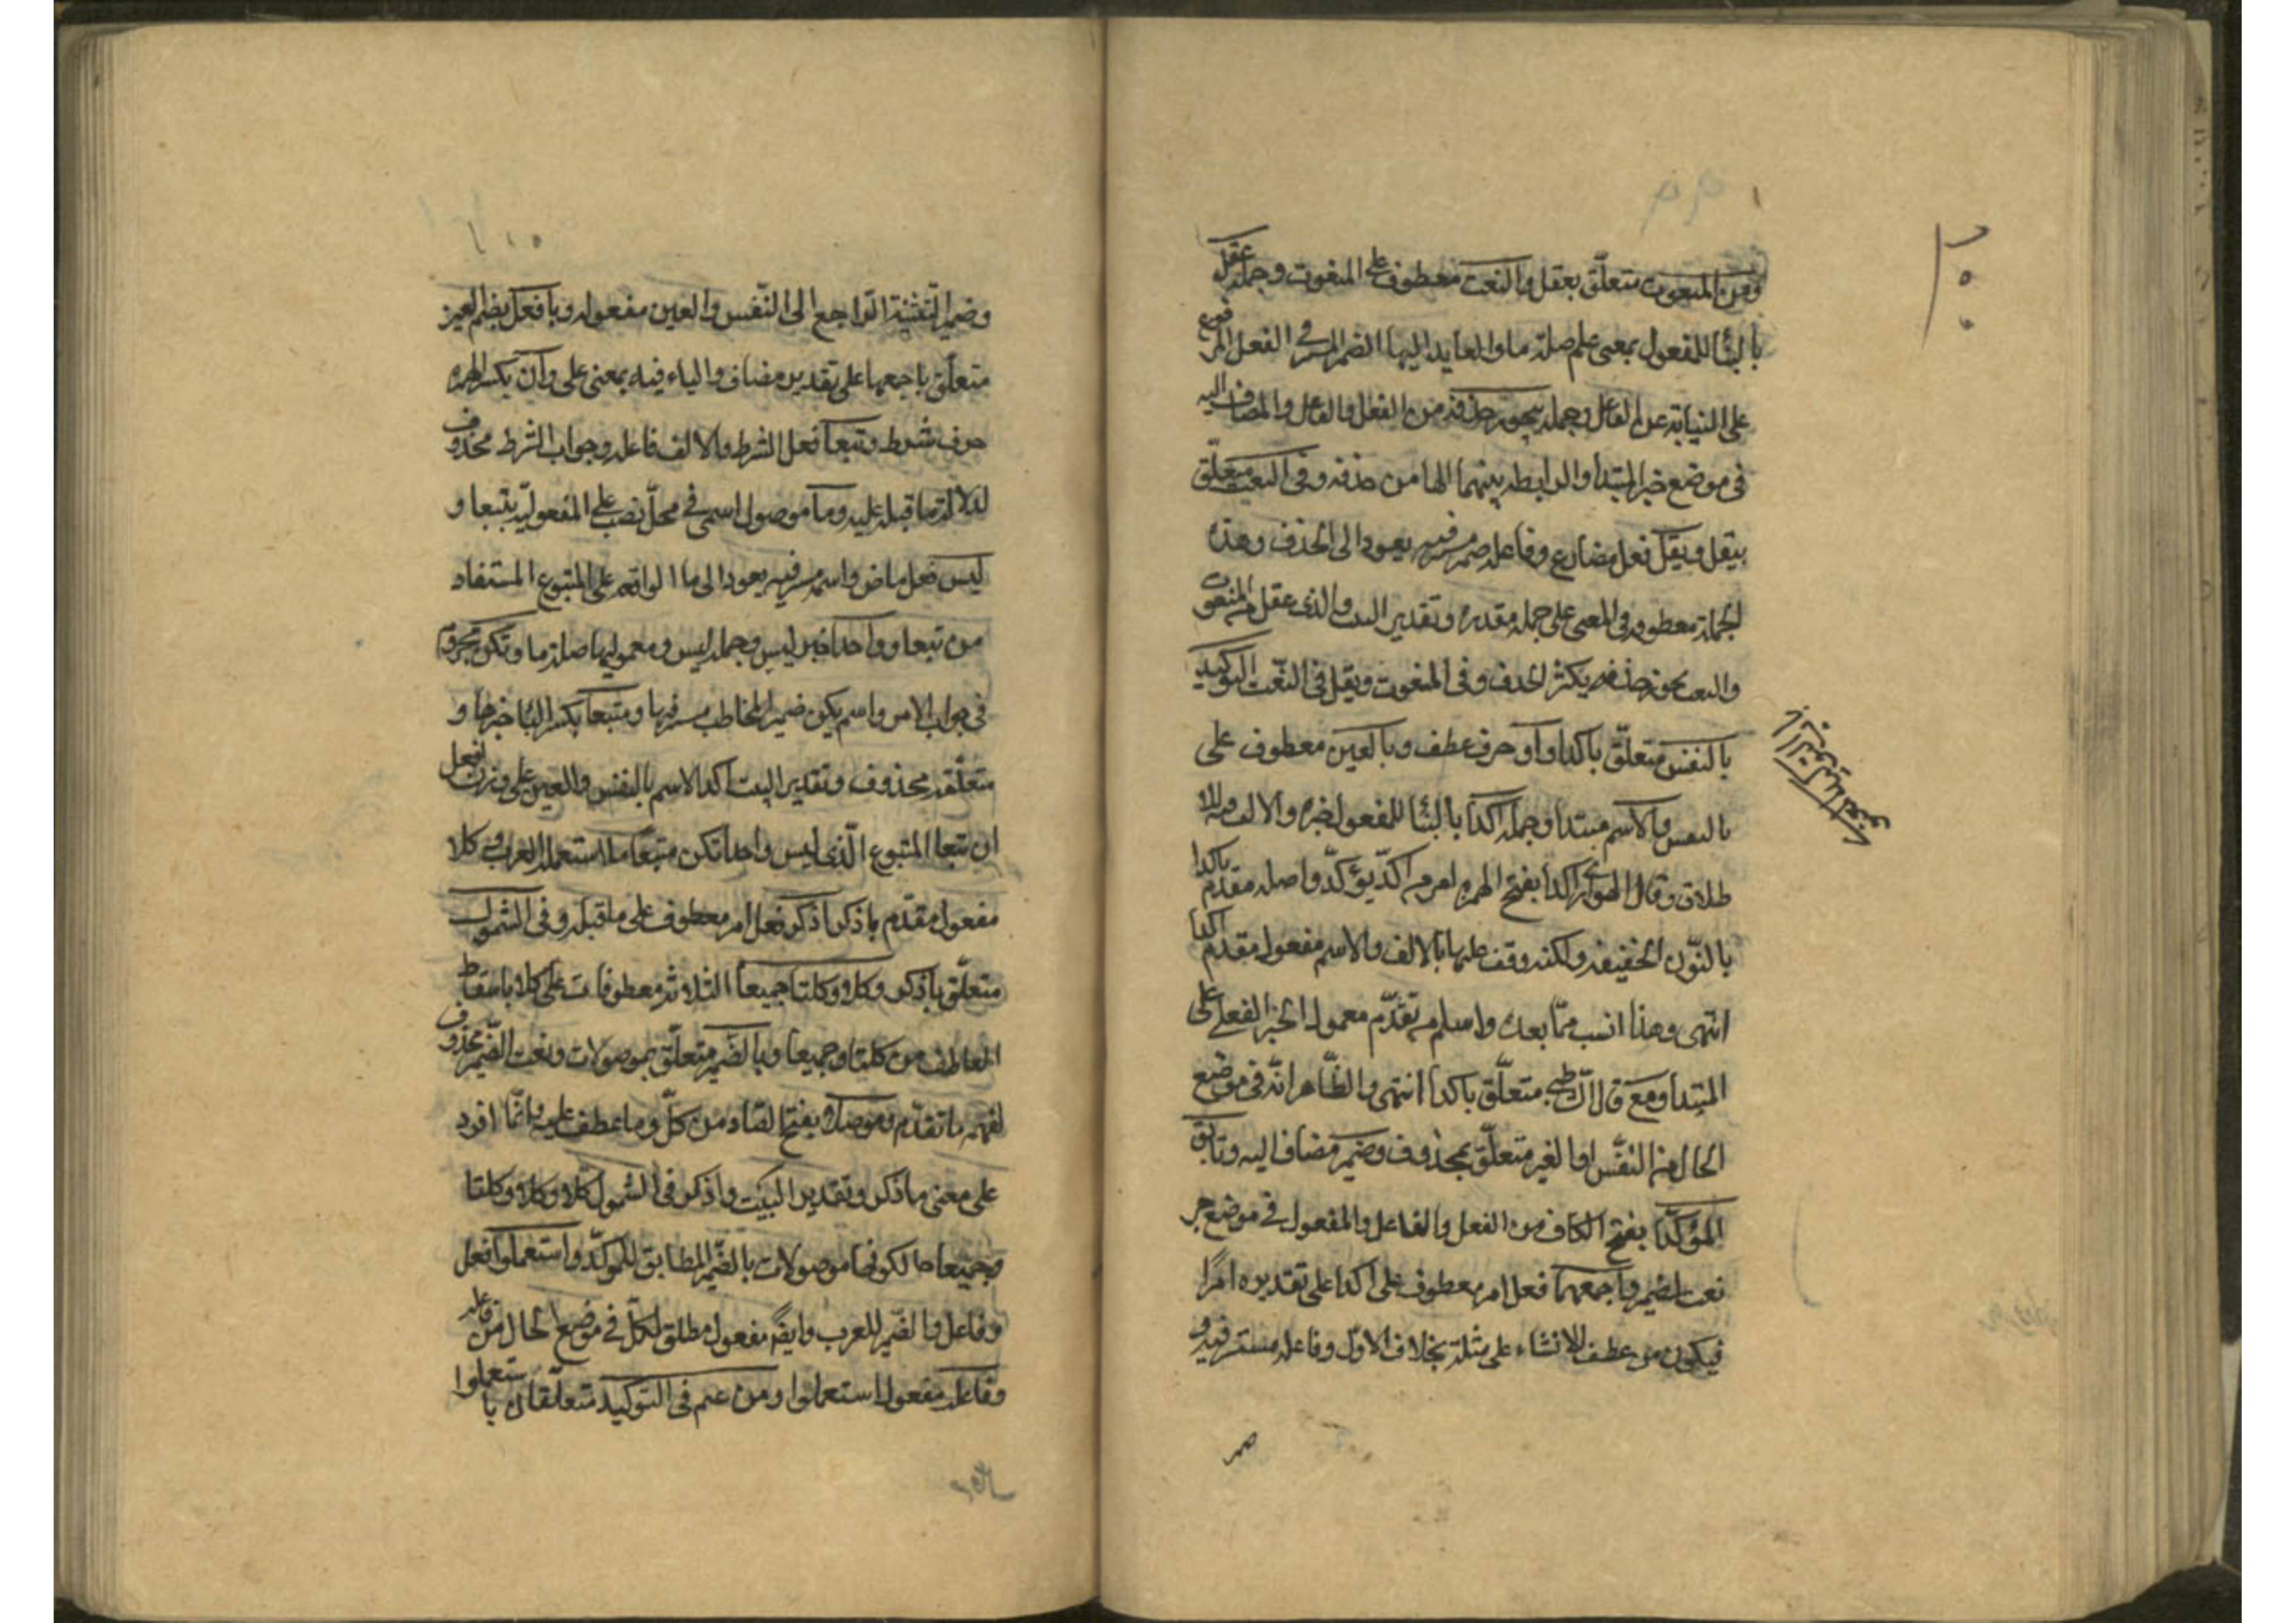 ومن المنعوت متعلّق بعقل والنعت معطوف على المنعوت وجملة عقل
بالبناء للمفعول بمعنى علم صلة ما والعايد اليها الضمير المستتر في الفعل المرفوع
على النيابة عن الفاعل وجملة يجوز حذفه من الفعل والفاعل والمضاف اليه
في موضع خبر المبتدا والرابطة بينهما الها من حذفه وفي النعت متعلّق
بيقل ويقل فعل مضارع وفاعله ضمير مستتر فيه يعود الى الحذف وهذه
الجملة معطوفة في المعنى على جملة مقدرة وتقدير البيت والذي عقل من المنعوت
والنعت يجوز حذفه يكثر الحذف في المنعوت ويقل في النّعت التوكيد
بالنفس متعلّق باكدا واو حرف عطف وبالعين معطوف على
بالنفس والاسم مبتدا وجملة اكدا بالبنا للمفعول خبره والالف للا
طلاق وقال الهواري اكدا بفتح الهمزه امر من اكّد يؤكّد واصله مقدم باكدا
بالنّون الخفيفة ولكنه وقف عليها بالالف والاسم مفعول مقدم اكدا
انتهى وهذا انسب ممّا بعده واسلم من تقدّم معمول الخبر الفعلي على
المبتدا ومع قال الشاطبي متعلّق باكدا انتهى والظّاهر انّه في موضع
الحال من النفّس او الغير متعلّق بمحذوف وضمير مضاف اليه وتابق
المؤكّدا بفتح الكاف من الفعل والفاعل والمفعول في موضع جر
نعت لضمير واجمعهما فعل امر معطوف على اكدا على تقديره امرًا
فيكون من عطف الانشاء على مثله بخلاف الاوّل وفاعله مستتر فيه و
وضمير التّثنية الرّاجع الى النّفس والعين مفعوله وبافعل بضم العين
متعلّق باجمعهما على تقدير مضاف والباء فيه بمعنى على وان بكسر الهمزه
حرف شرط وتبعا فعل الشرط والالف فاعله وجواب الشرط محذوف
لدلالة ما قبله عليه وما موصول اسمي في محلّ نصب على المفعوليّة بتبعا و
ليس فعل ماض واسمه مستتر فيه يعود الى ما الواقعه على المتبوع المستفاد
من تبعا وواحدا خبر ليس وجملة ليس ومعموليها صلة ما وتكن مجزوم
في جواب الامر واسم يكن ضمير المخاطب مستتر فيها ومتبعا بكسر البا خبرها و
متعلّقه محذوف وتقدير البيت اكدا الاسم بالنفس والعين على وزن افعل
ان تتبعا المتبوع الّذي ليس واحدا تكن متبعًا لاستعمال العرب وكلا
مفعول مقدّم باذكر اذكر فعل امر معطوف على ما قبله وفي الشمول
متعلّق باذكر وكلا وكلتا جميعا الثلاثة معطوفات على كلا باسقاط
العاطف من كلتا وجميعا وبالضّمير متعلّق بموصولات ونعت الضّمير محذوف
لفهمه ما تقدّم وموصلا بفتح الصّاد من كلّ وما عطف عليه وانّما افرد
على معنى ما ذكر وتقدير البيت واذكر في الشمول كلا وكلا وكلتا
وجميعا حالكونها موصولات بالضّمير المطابق للمؤكّد واستعملوا فعل
وفاعل والضّمير للعرب وايضًا مفعول مطلق لكلّ في موضع الحال من فاعله
وفاعله مفعول استعملوا ومن عم في التوكيد متعلّقان باستعملوا